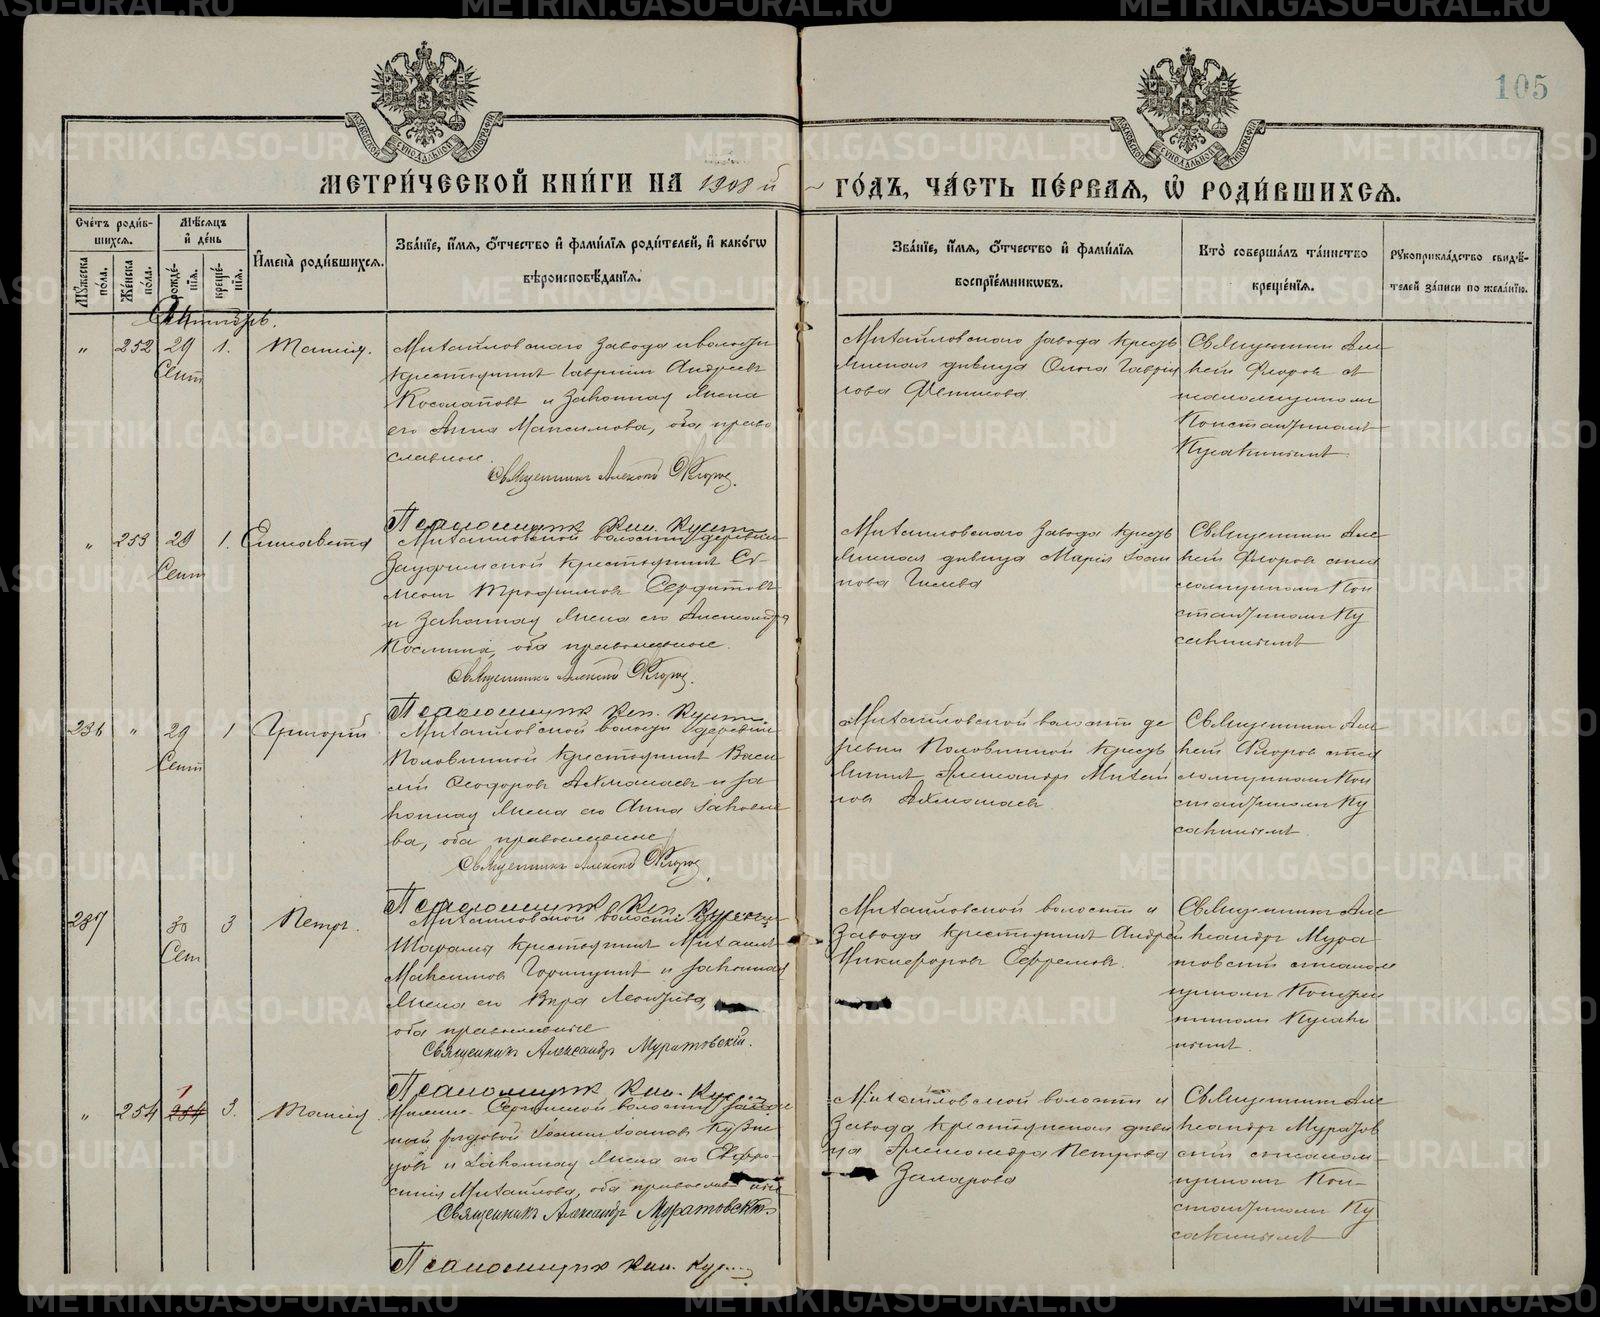 105
МОСКОВСКОЙ СѴНОДАЛЬНОЙ ТИПОГРАФІИ
МОСКОВСКОЙ СѴНОДАЛЬНОЙ ТИПОГРАФІИ
МЕТРИ́ЧЕСКОЙ КНИ́ГИ НА 1908 й ГО́ДЪ, ЧА́СТЬ ПЕ́РВАЯ, Ѽ РОДИ́ВШИХСЯ.
Сче́тъ роди́в-
шихся.
Мѣ́сяцъ
и҆ де́нь
Му́жеска
по́ла.
Же́нска
по́ла.
рожде́-
нїя.
креще́-
нїя.
И҆мена̀ роди́вшихся.
Зва́нїе, и҆́мя, ѻ҆́тчество и҆ фами́лїя роди́телей, и҆ како́гѡ
вѣроисповѣ́данїя.
Зва́нїе, и҆́мя, ѻ҆́тчество и҆ фами́лїя
воспрїе́мникѡвъ.
Кто̀ соверша́лъ та́инство
креще́нїя.
Рукоприкла́дство свидѣ́-
телей за́писи по жела́нїю.
Октябрь.
„ 252 29 1.
Сент
Михайловскаго завода и волости
крестьянинъ Гавріилъ Андреевъ
Косолаповъ и законная жена
его Анна Максимова, оба право
славные.
Священникъ Алексій Флоров.
Псаломщикъ Кон.
Михайловскаго завода кресть
янская дѣвица Ольга Гаврил
лова
Священникъ Але
ксій Флоровъ с
псаломщикомъ
Константиномъ
Кусакинымъ
„ 253 29 1. Елисавета
Сент
Михайловской волости деревни
Зауфимской крестьянинъ Си
меонъ Трофимовъ Сердитовъ
и законная жена его Александра
Косьмина, оба православные.
Священникъ Алексій Флоров.
Псаломщикъ Кон.
Михайловскаго завода кресть
янская дѣвица Марія Іоси
пова Гилева
Священникъ Але
ксій Флоровъ с пса
ломщикомъ Кон
стантиномъ Ку
сакинымъ
236 „ 29 1 Григорій
Сент
Михайловской волости деревни
Половинной крестьянинъ Васи
лій Ѳеодоровъ и за
конная жена его Анна Іаковле
ва, оба православные
Священникъ Алексій Флоров.
Псаломщикъ Кон.
Михайловской волости де
ревни Половинной кресть
янинъ Александръ Михай
ловъ
Священникъ Але
ксій Флоровъ с пса
ломщикомъ Кон
стантиномъ Ку
сакинымъ.
237 30 3 Петръ.
Сен
Михайловской волости деревни
Шарама крестьянинъ Михаилъ
Максимовъ и законная
жена его Вѣра Леонтьева
оба православные
Священникъ Александръ Муратовскій.
Псаломщикъ Кон.
Михайловской волости и
завода крестьянинъ Андрей
Никифоровъ Ефремовъ.
Священникъ Але
ксандръ Мура
товскій с псалом
щикомъ Констан
тиномъ Кусаки
нымъ.
„ 254 1 3.
Сергинской волости
рядовой Іоаннъ Іоановъ Кузне
цовъ и законная жена его Евфро-
синія Михайлова, оба православные
Священникъ Александръ Муратовскій
Псаломщикъ Кон.
Михайловской волости и
завода крестьянская дѣви
ца Александра Петрова
Захарова
Священникъ Але
ксандръ Муратов
скій с псалом-
щикомъ Кон-
стантиномъ Ку
сакинымъ